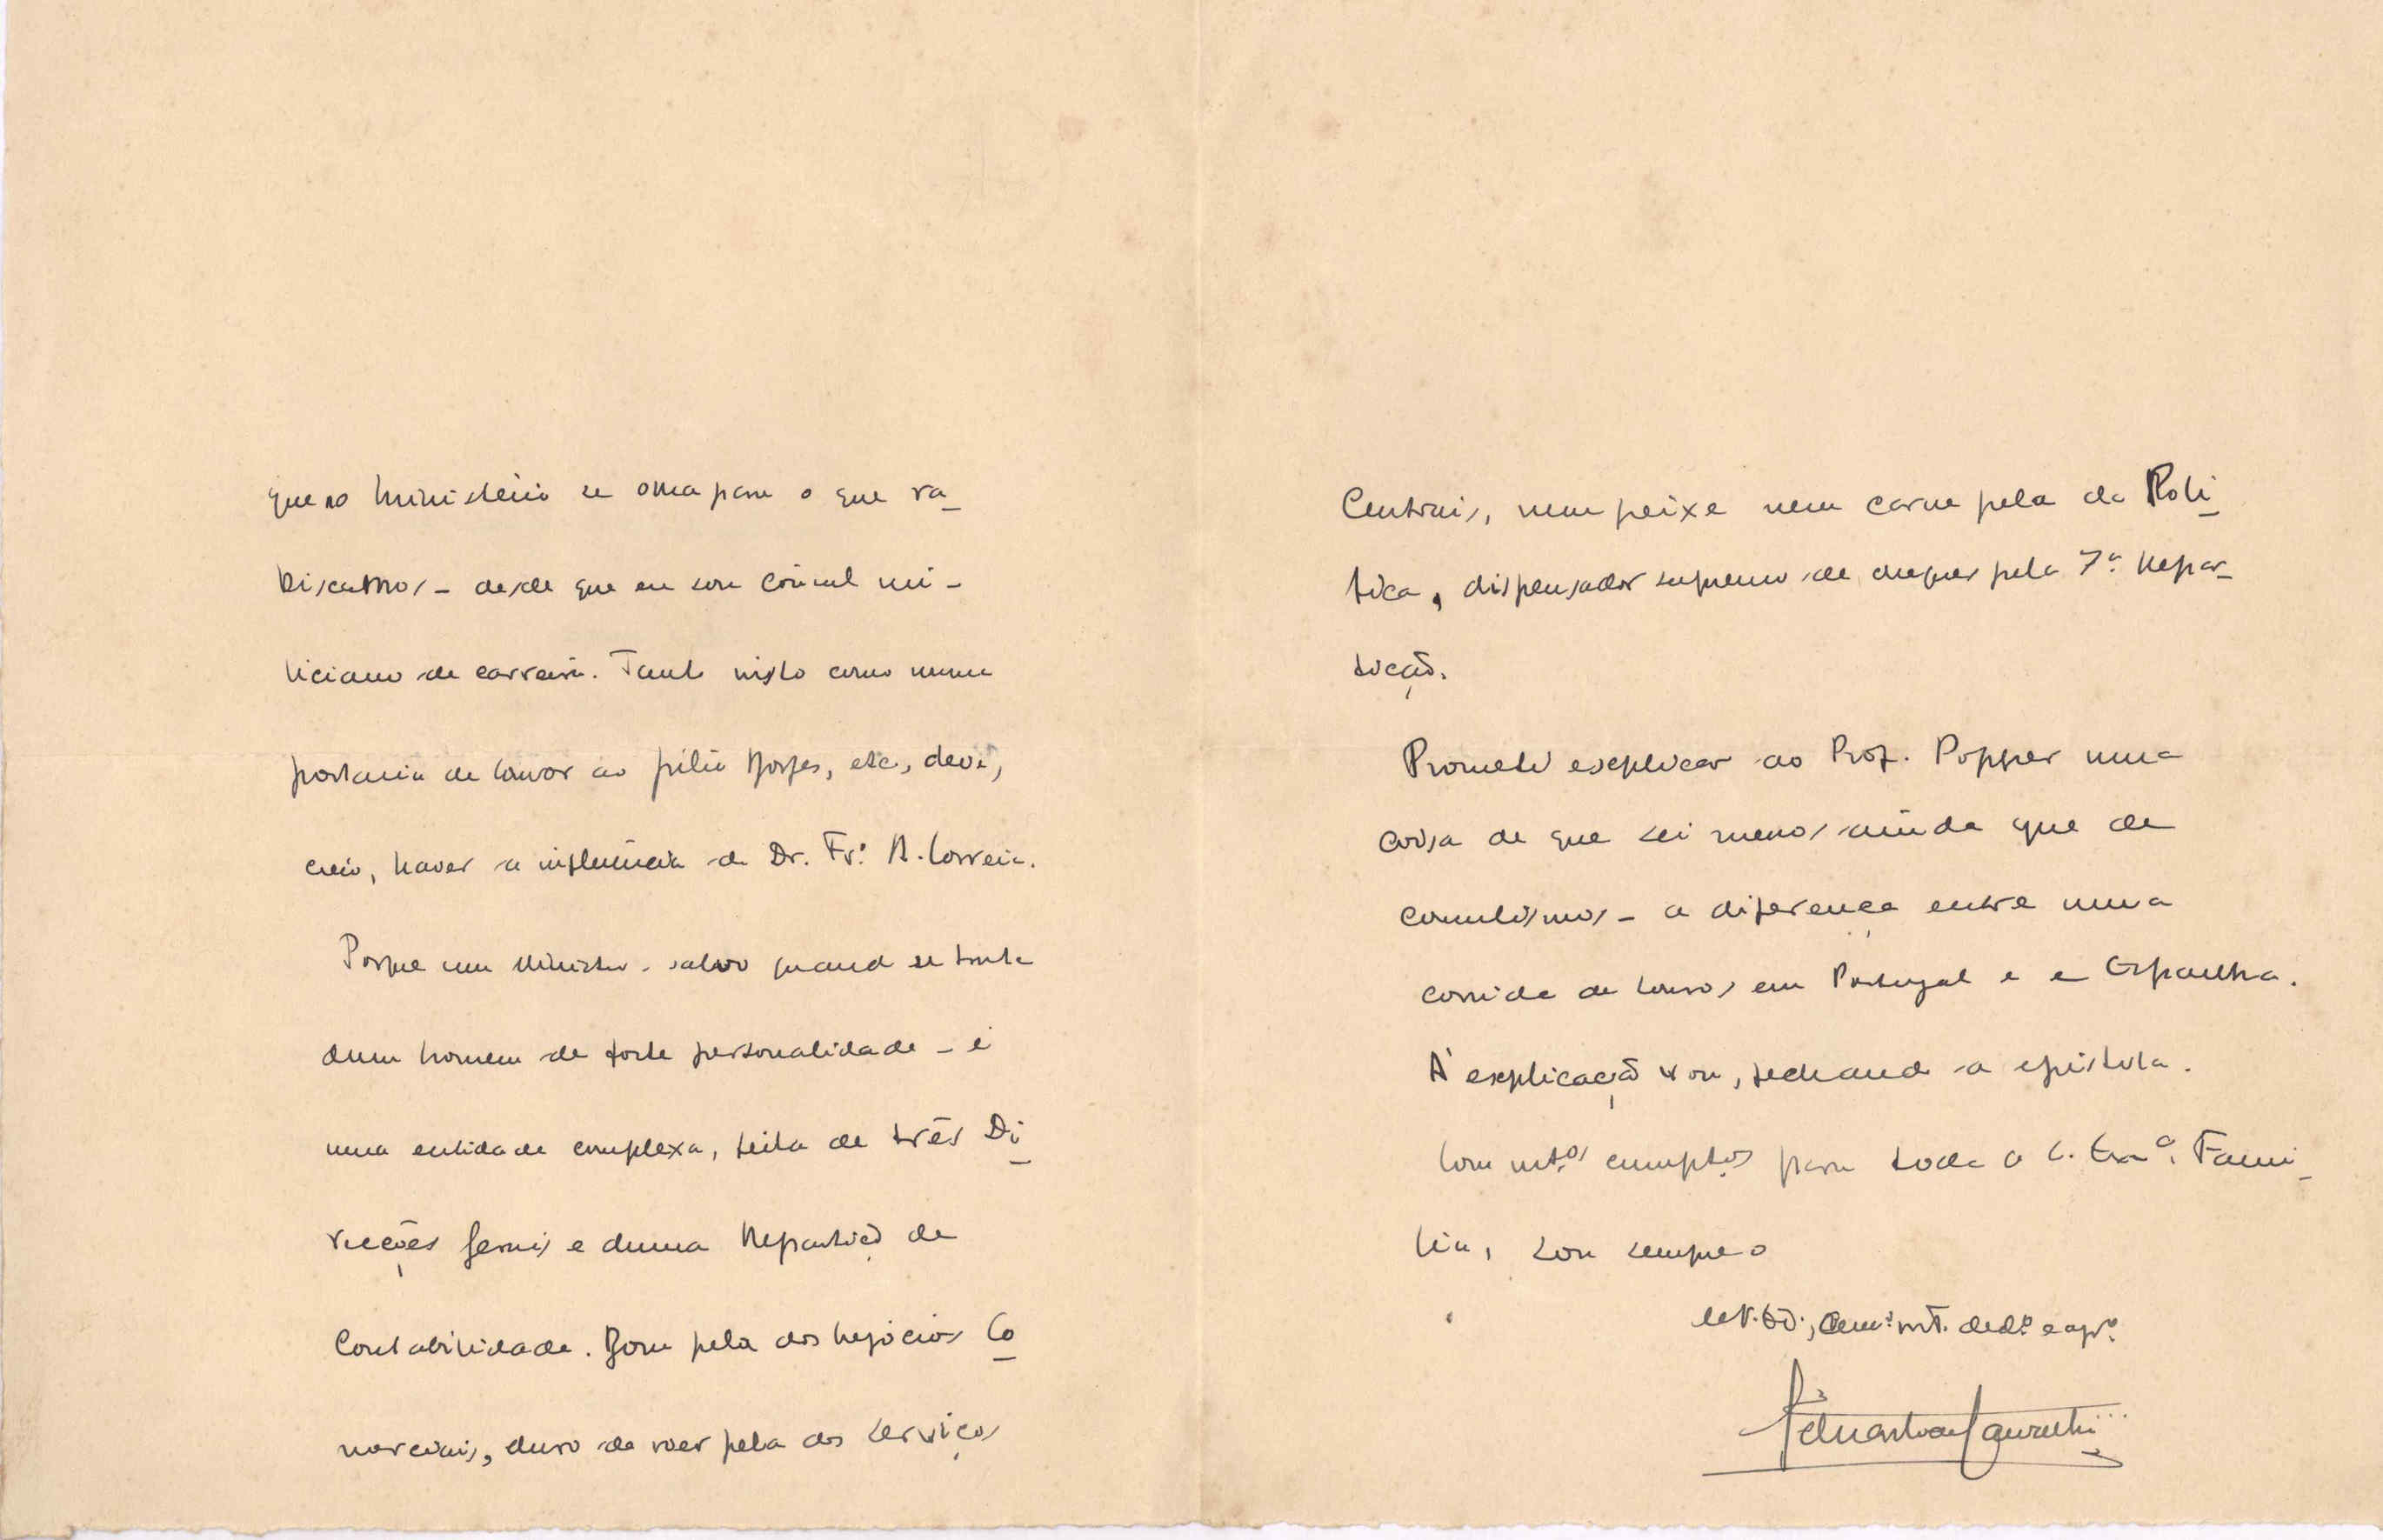 que no Ministério se olha para o que ra-
biscamos - desde que eu sou cônsul mi-
liciano de carreira. Tanto nisto como numa
portaria de louvor ao filho Borges, etc., deve,
creio, haver a influência do Dr. Fr.º A. Correia.
Porque um Ministro - salvo quando se trata
dum homem de forte personalidade - é
uma entidade complexa, feita de três Di-
recções Gerais e duma Repartição de
Contabilidade. Bom pela dos Negócios Co-
merciais, duro de roer pela dos Serviços
Centrais, nem peixe nem carne pela da Polí-
tica, dispensador supremo de cheques pela 7.ª Repar-
tição.
Prometi explicar ao Prof. Popper uma
coisa de que sei menos ainda que de
- a diferença entre uma
corrida de touros em Portugal e e Espanha.
À explicação vou, fechando a epístola.
Com mt.ºs cumpt.ºs para toda a Ex.ª Famí-
lia, sou sempre o
mt. ded.º e